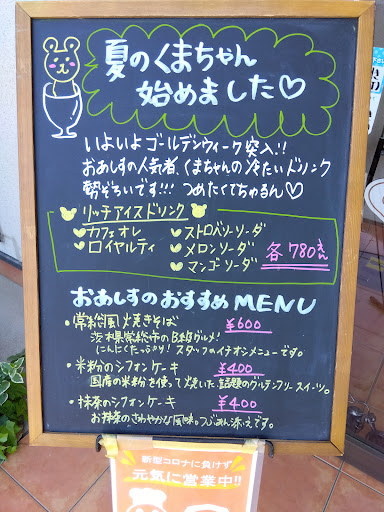 夏のくまちゃん
始めました♡
いよいよゴールデンウィーク突入!!
おあしすの人気者、くまちゃんの冷たいドリンク
勢ぞろいです!!! つめたくてちゅるん♡
リッチアイスドリンク
♥カフェオレ ♥ストロベリーソーダ
♥ロイヤルティ ♥メロンソーダ
♥マンゴソーダ 各780えん
おあしすのおすすめMENU
・常総風焼きそば ¥600
茨木県常総市のB級グルメ!
にんにくたっぷり! スタッフのイチオシメニューです。
・米粉のシフォンケーキ ¥400
国産の米粉を使って焼いた話題のグルテンフリースイーツ。
・抹茶のシフォンケーキ ¥400
お抹茶のさわやかな風味。つぶあん添えです。
新型コロナに負けず
元気に営業中!!